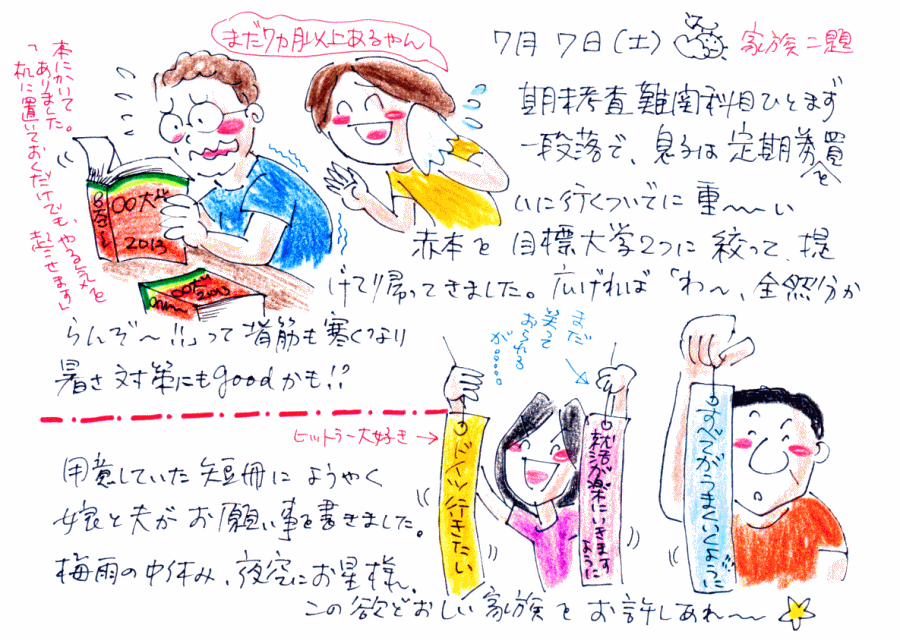 7月7日(土)
家族二題
まだ7ヵ月以上あるやん
本にかいて
ありました。
「机に置いておくだけでも、やる気を
起こせます」
〇〇大学
2013
〇〇大学
2013
期末考査難関科目ひとまず
一段落で、息子は定期券を買
いに行くついでに重〜〜い
赤本を目標大学2つに絞って、提
げて帰ってきました。広げれば「わ〜、全然分か
らんぞ〜!!」って背筋も寒くなり
暑さ対策にもgoodかも!?
まだ
ヒットラー大好き→
ドイツ行きたい
就活が楽にいきます
ように
すべてがうまくいくように
用意していた短冊にようやく
娘と夫がお願い事を書きました。
梅雨の中休み、夜空にお星様、
この欲どおしい家族をお許しあれ〜〜